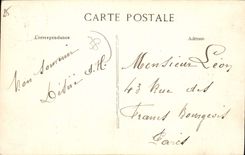 CARTE POSTALE
Correspondance
Adresse
Bon Souvenir
Désiré
Monsieur Léon
43 Rue des
Francs Bourgeois
Paris